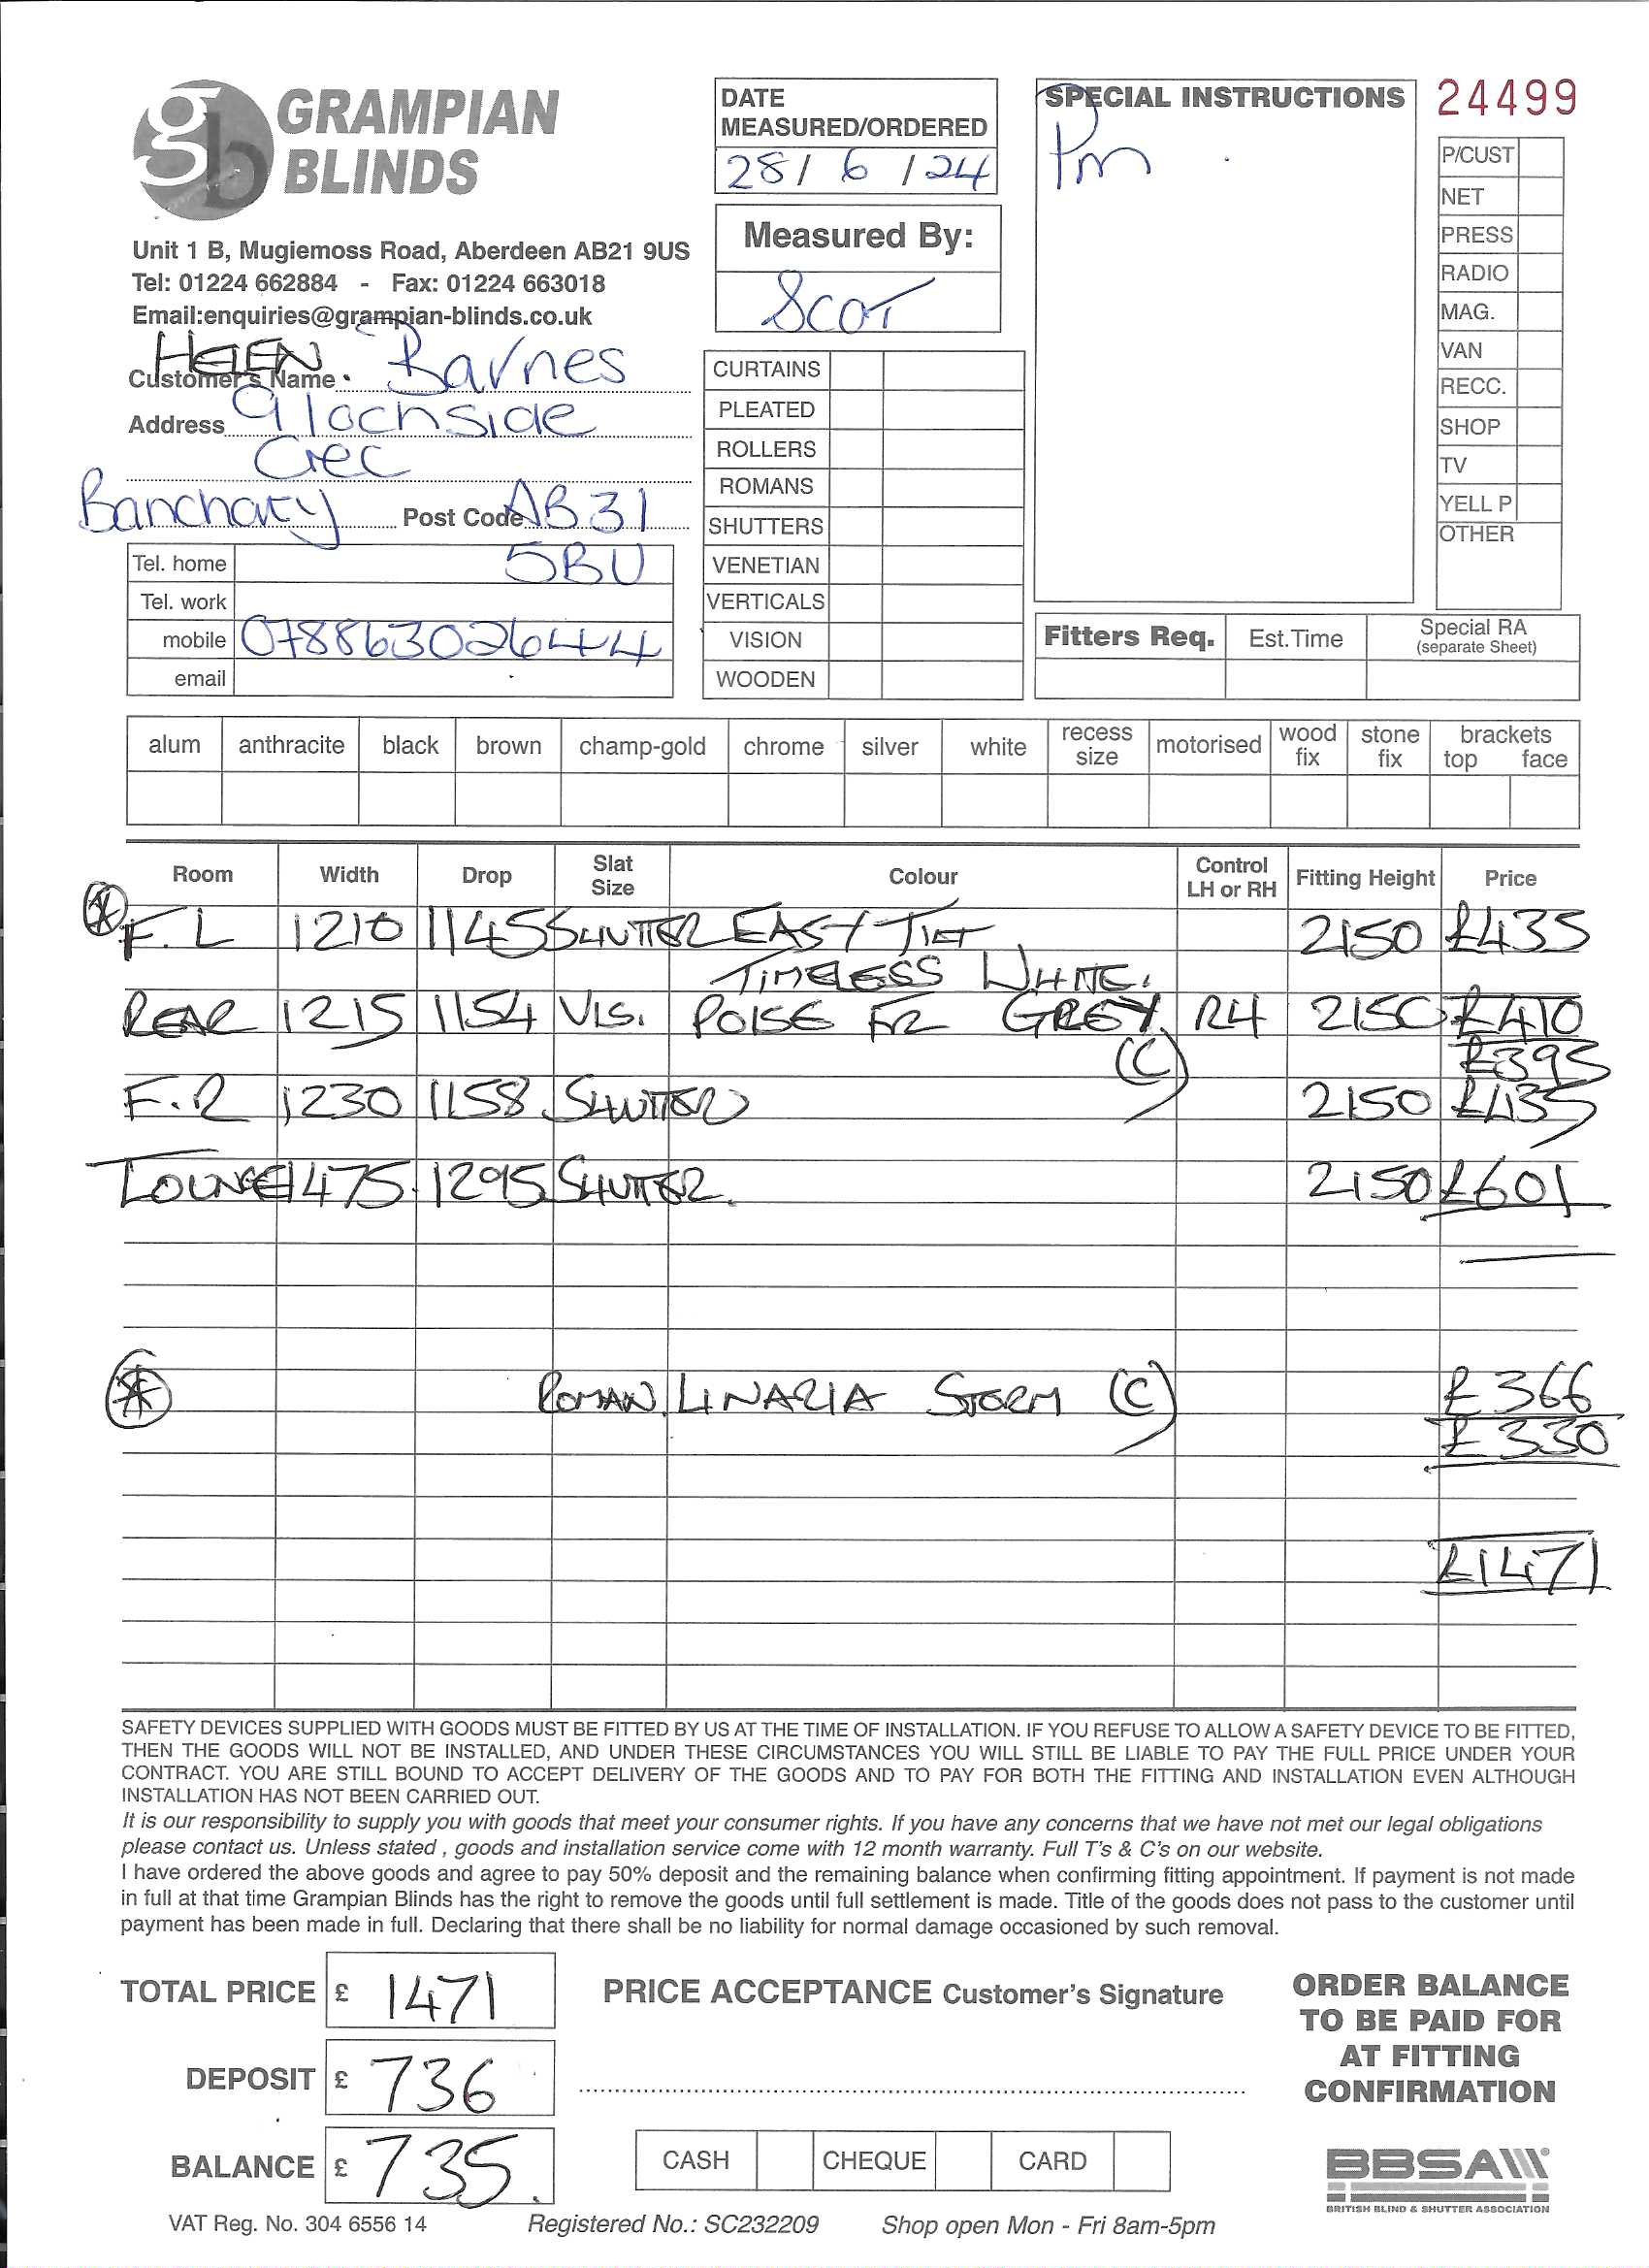 gb GRAMPIAN BLINDS
Unit 1 B, Mugiemoss Road, Aberdeen AB21 9US
Tel: 01224 662884 - Fax: 01224 663018
Email:enquiries@grampian-blinds.co.uk
Customer's Name HELEN Barnes
Address 9 lochside
Crec
Banchory Post Code AB31
5BU
Tel. home
Tel. work
mobile 07886302644
email
DATE
MEASURED/ORDERED
28/ 6 /24
Measured By:
Scot
CURTAINS
PLEATED
ROLLERS
ROMANS
SHUTTERS
VENETIAN
VERTICALS
VISION
WOODEN
SPECIAL INSTRUCTIONS
Pm
24499
P/CUST
NET
PRESS
RADIO
MAG.
VAN
RECC.
SHOP
TV
YELL P
OTHER
Fitters Req. Est.Time Special RA
(separate Sheet)
alum anthracite black brown champ-gold chrome silver white recess size motorised wood fix stone fix brackets top face
Room Width Drop Slat Size Colour Control LH or RH Fitting Height Price
F.L 1210 1145 SHUTTER EASY TILT 2150 £435
TIMELESS WHITE.
REAR 1215 1154 VIS. POISE FR GREY RH 2150 £410
(C) £395
F.R 1230 1158 SHUTTER 2150 £435
LOUNGE 1475 1295 SHUTTER. 2150 £601
ROMAN. LINARIA STORM (C) £366
£330
£1471
SAFETY DEVICES SUPPLIED WITH GOODS MUST BE FITTED BY US AT THE TIME OF INSTALLATION. IF YOU REFUSE TO ALLOW A SAFETY DEVICE TO BE FITTED,
THEN THE GOODS WILL NOT BE INSTALLED, AND UNDER THESE CIRCUMSTANCES YOU WILL STILL BE LIABLE TO PAY THE FULL PRICE UNDER YOUR
CONTRACT. YOU ARE STILL BOUND TO ACCEPT DELIVERY OF THE GOODS AND TO PAY FOR BOTH THE FITTING AND INSTALLATION EVEN ALTHOUGH
INSTALLATION HAS NOT BEEN CARRIED OUT.
It is our responsibility to supply you with goods that meet your consumer rights. If you have any concerns that we have not met our legal obligations
please contact us. Unless stated , goods and installation service come with 12 month warranty. Full T's & C's on our website.
I have ordered the above goods and agree to pay 50% deposit and the remaining balance when confirming fitting appointment. If payment is not made
in full at that time Grampian Blinds has the right to remove the goods until full settlement is made. Title of the goods does not pass to the customer until
payment has been made in full. Declaring that there shall be no liability for normal damage occasioned by such removal.
TOTAL PRICE £ 1471
DEPOSIT £ 736
BALANCE £ 735.
PRICE ACCEPTANCE Customer's Signature
CASH CHEQUE CARD
ORDER BALANCE
TO BE PAID FOR
AT FITTING
CONFIRMATION
BBSA
BRITISH BLIND & SHUTTER ASSOCIATION
VAT Reg. No. 304 6556 14 Registered No.: SC232209 Shop open Mon - Fri 8am-5pm